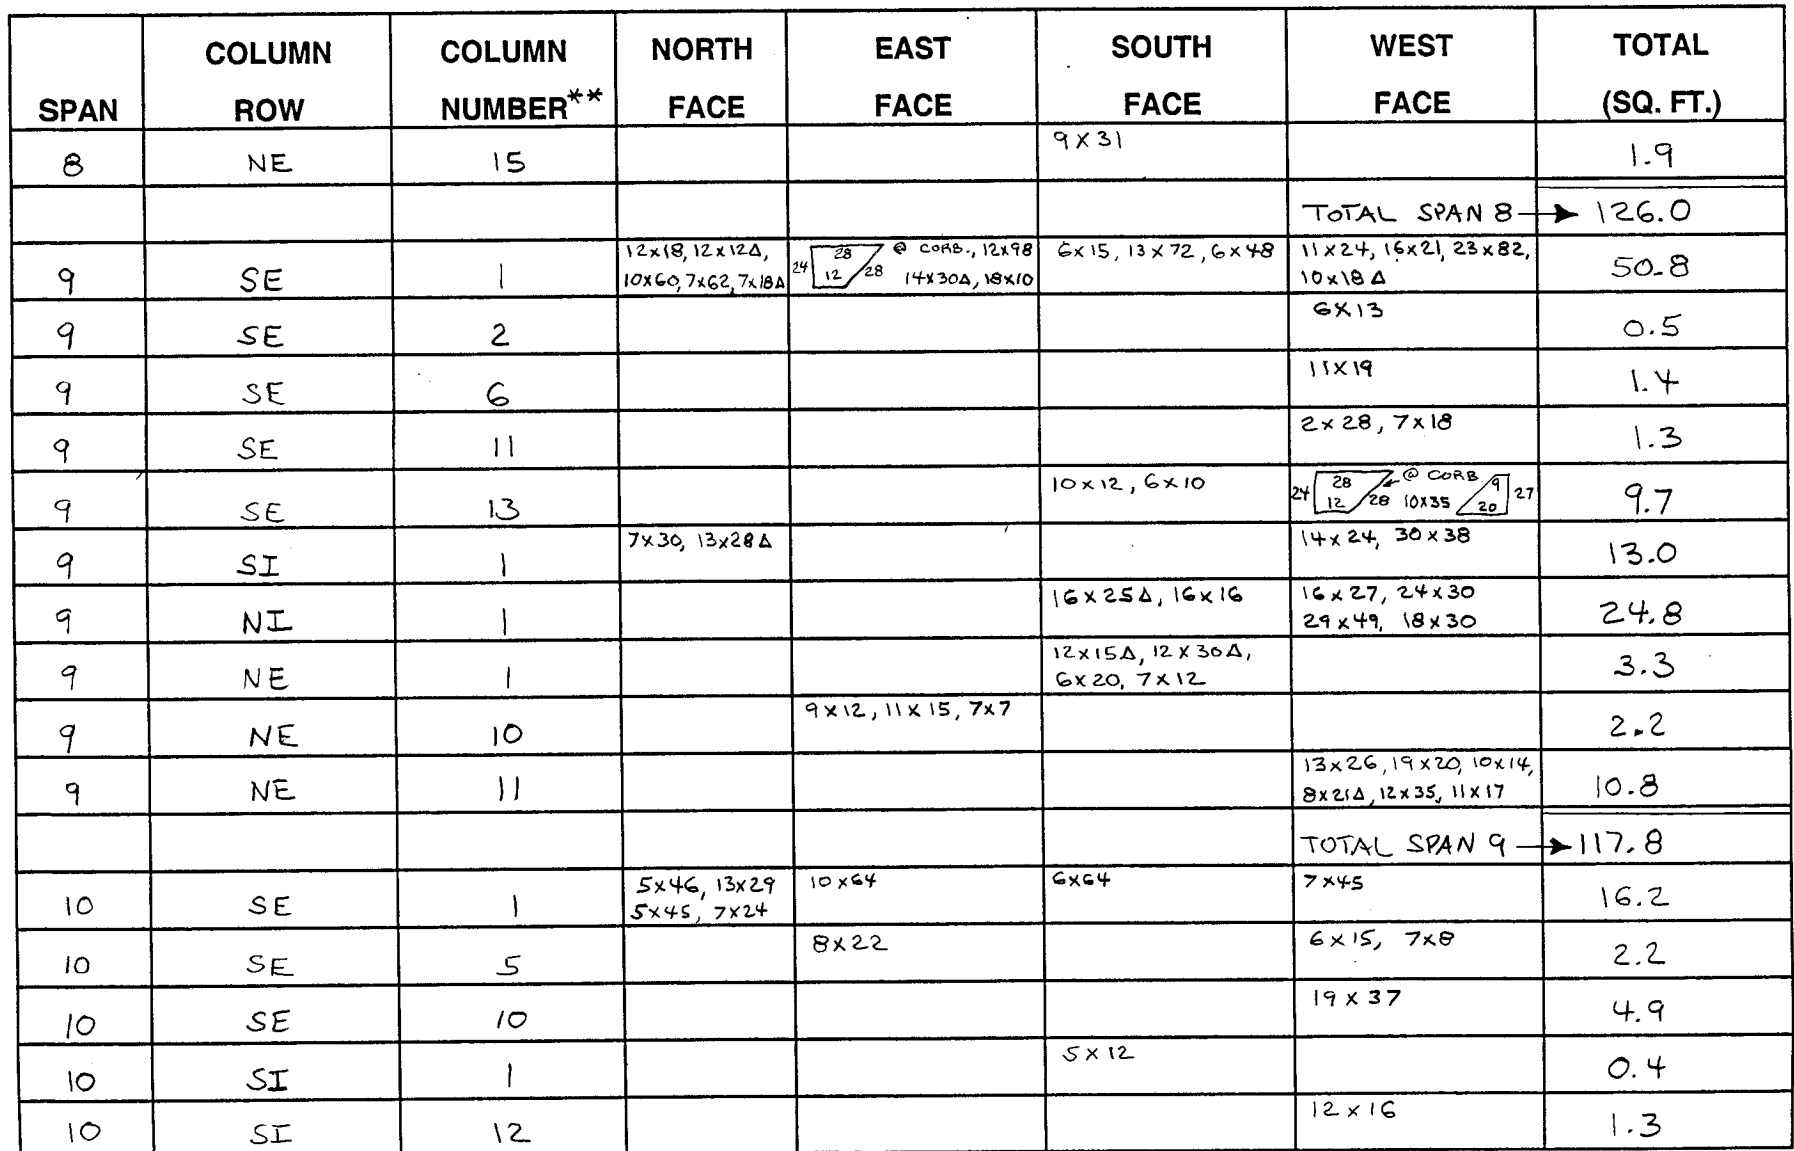 SPAN COLUMN ROW COLUMN NUMBER** NORTH FACE EAST FACE SOUTH FACE WEST FACE TOTAL (SQ. FT.)
8 NE 15 9x31 1.9
TOTAL SPAN 8 → 126.0
9 SE 1 12x18, 12x12Δ, 10x60, 7x62, 7x18Δ 24 28 12 28 @ CORB., 12x98 14x30Δ, 18x10 6x15, 13x72, 6x48 11x24, 16x21, 23x82, 10x18Δ 50.8
9 SE 2 6x13 0.5
9 SE 6 11x19 1.4
9 SE 11 2x28, 7x18 1.3
9 SE 13 10x12, 6x10 24 28 12 28 @ CORB 10x35 9 20 27 9.7
9 SI 1 7x30, 13x28Δ 14x24, 30x38 13.0
9 NI 1 16x25Δ, 16x16 16x27, 24x30 29x49, 18x30 24.8
9 NE 1 12x15Δ, 12x30Δ, 6x20, 7x12 3.3
9 NE 10 9x12, 11x15, 7x7 2.2
9 NE 11 13x26, 19x20, 10x14, 8x21Δ, 12x35, 11x17 10.8
TOTAL SPAN 9 → 117.8
10 SE 1 5x46, 13x29 5x45, 7x24 10x64 6x64 7x45 16.2
10 SE 5 8x22 6x15, 7x8 2.2
10 SE 10 19x37 4.9
10 SI 1 5x12 0.4
10 SI 12 12x16 1.3